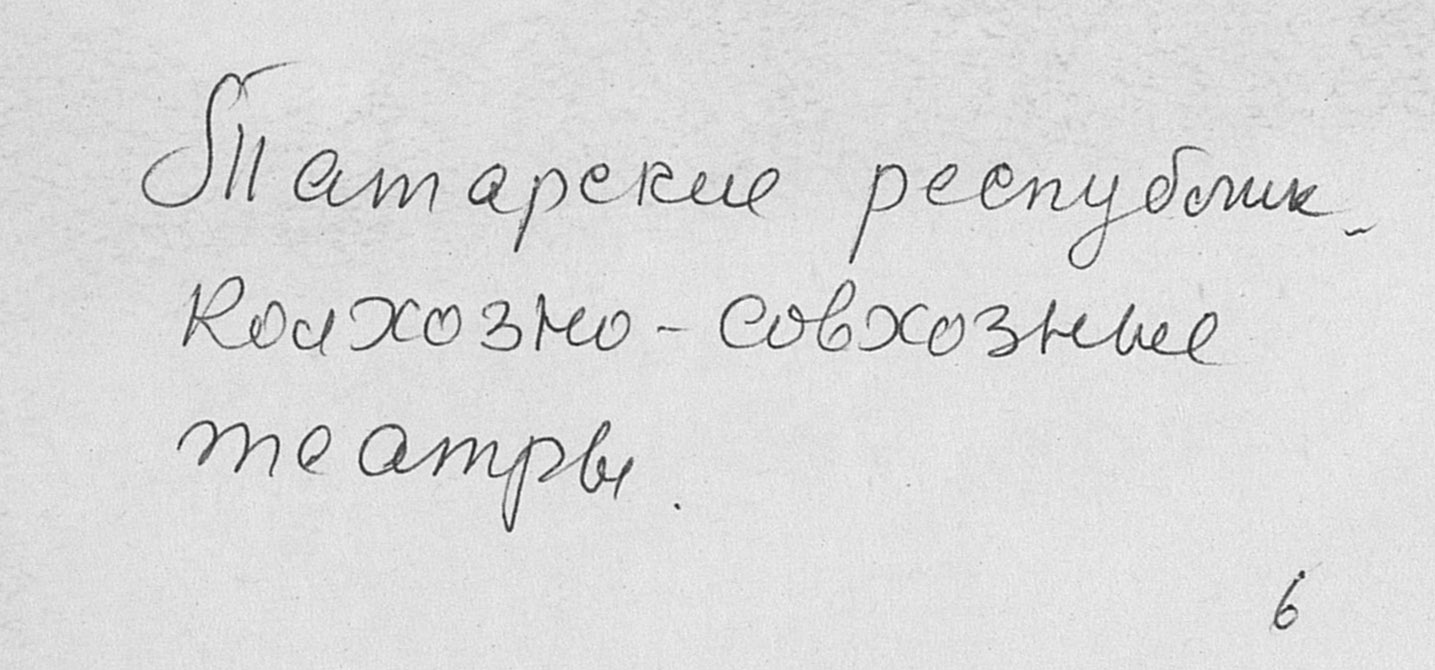 Татарские республик-
колхозно-совхозные
театры.
6